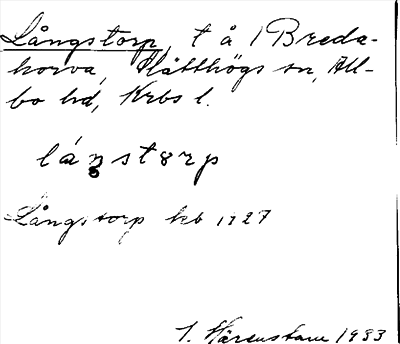 Långstorp, t å 1 Breda-
horva, Slätthögs sn, All-
bo hd, Krbs l.
láŋstɵrp
Långstorp kb 1727
I. Härenstam 1933